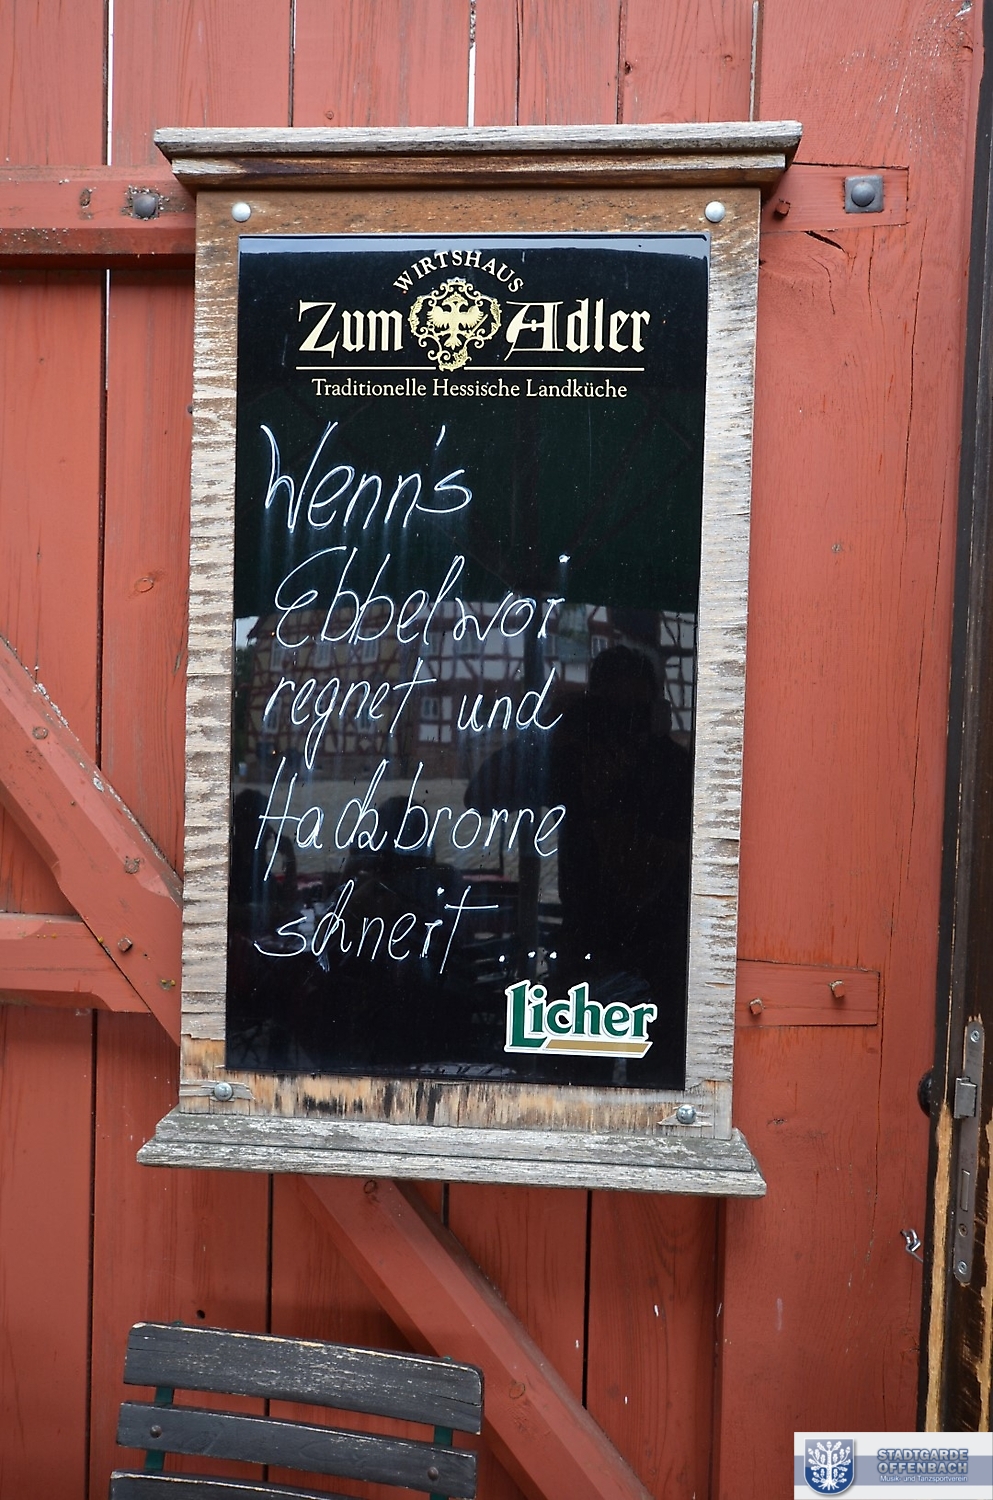 WIRTSHAUS
Zum Adler
Traditionelle Hessische Landküche
Wenn's
Ebbelwoi
regnet und
Hackbrorre
schneit ....
Licher
STADTGARDE
OFFENBACH
Musik- und Tanzsportverein